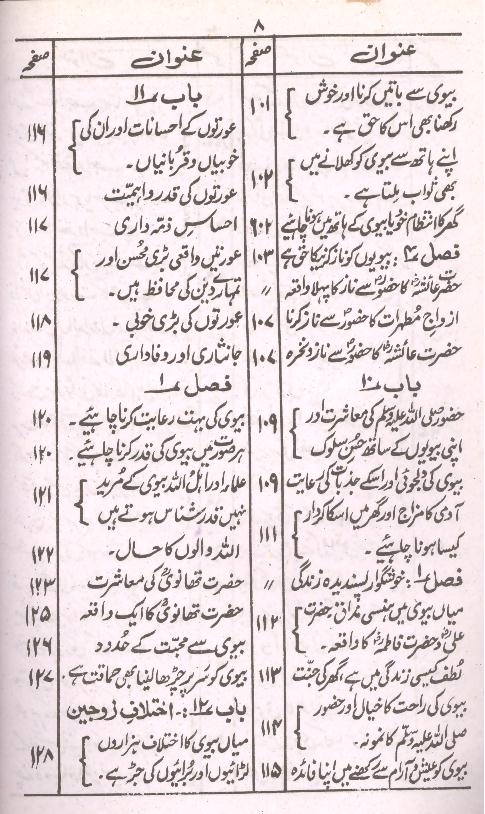 ۸
عنوان صفحہ
بیوی سے باتیں کرنا اور خوش
رکھنا بھی اس کا حق ہے۔ ۱۰۱
اپنے ہاتھ سے بیوی کو کھلانے میں
بھی ثواب ملتا ہے۔ ۱۰۲
گھر کا انتظام خود یا بیوی کے ہاتھ میں ہونا چاہئے ۱۰۲
فصل ۲؎: بیویوں کو ناز کرنیکا حق ہے ۱۰۳
حضرت عائشہؓ کا حضورؐ سے ناز کا پہلا واقعہ 〃
ازواج مطہرات کا حضورؐ سے ناز کرنا ۱۰۷
حضرت عائشہؓ کا حضورؐ سے ناز و نخرہ ۱۰۷
باب ۱۰؎
حضور صلی اللہ علیہ وسلم کی معاشرت اور
اپنی بیویوں کے ساتھ حسن سلوک ۱۰۹
بیوی کی دلجوئی اور اسکے جذبات کی رعایت ۱۰۹
آدمی کا مزاج اور گھر میں اسکا کردار
کیسا ہونا چاہئے۔ ۱۱۱
فصل ۱؎: خوشگوار پسندیدہ زندگی 〃
میاں بیوی میں ہنسی مذاق حضرت
علیؓ و حضرت فاطمہؓ کا واقعہ۔ ۱۱۲
لُطف کیسی زندگی میں ہے، گھر کی جنّت ۱۱۳
بیوی کی راحت کا خیال اور حضور
صلی اللہ علیہ وسلم کا نمونہ۔ ۱۱۴
بیوی کو عیش و آرام سے رکھنے میں اپنا فائدہ ۱۱۵
عنوان صفحہ
باب ۱۱؎
عورتوں کے احسانات اور ان کی
خوبیاں و قربانیاں۔ ۱۱۶
عورتوں کی قدر و اہمیّت ۱۱۶
احساس ذمّہ داری ۱۱۷
عورتیں واقعی بڑی محسن اور
تمہارے دین کی محافظ ہیں۔ ۱۱۷
عورتوں کی بڑی خوبی۔ ۱۱۸
جانثاری اور وفاداری ۱۱۹
فصل ۱؎
بیوی کی بہت رعایت کرنا چاہیئے۔ ۱۲۰
ہر صورت میں بیوی کی قدر کرنا چاہیئے۔ ۱۲۰
علماء اور اہل اللہ بیوی کے مُرید
نہیں قدر شناس ہوتے ہیں ۱۲۱
اللہ والوں کا حال۔ ۱۲۲
حضرت تھانویؒ کی معاشرت ۱۲۳
حضرت تھانویؒ کا ایک واقعہ ۱۲۵
بیوی سے محبّت کے حُدود ۱۲۶
بیوی کو سر پر چڑھا لینا بھی حماقت ہے۔ ۱۲۷
باب ۱۲؎: اختلافِ زوجین
میاں بیوی کا اختلاف ہزاروں
لڑائیوں اور برائیوں کی جڑ ہے۔ ۱۲۸